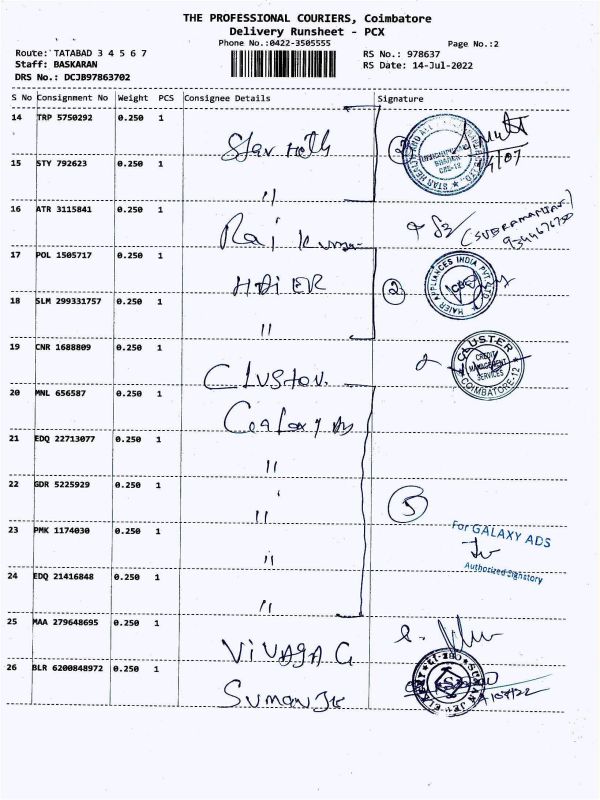 THE PROFESSIONAL COURIERS, Coimbatore
Delivery Runsheet - PCX
Phone No.:0422-3505555
Page No.:2
Route: TATABAD 3 4 5 6 7
Staff: BASKARAN
DRS No.: DCJB97863702
RS No.: 978637
RS Date: 14-Jul-2022
S No Consignment No Weight PCS Consignee Details Signature
14 TRP 5750292 0.250 1 Star
15 STY 792623 0.250 1 "
16 ATR 3115841 0.250 1 Raj Kumar (SUBRAMANIAN)
17 POL 1505717 0.250 1 HAiER 2
HAIER APPLIANCES INDIA PVT LTD
18 SLM 299331757 0.250 1 "
19 CNR 1688809 0.250 1 Cluster 2
CLUSTER
CREDIT
MANAGEMENT
SERVICES
COIMBATORE-12
20 MNL 656587 0.250 1 Galaxy Ads
21 EDQ 22713077 0.250 1 "
22 GDR 5225929 0.250 1 " 5
23 PMK 1174030 0.250 1 "
For GALAXY ADS
Authorized Signatory
24 EDQ 21416848 0.250 1 "
25 MAA 279648695 0.250 1 ViNAYAG
26 BLR 6200848972 0.250 1 Suman Jet